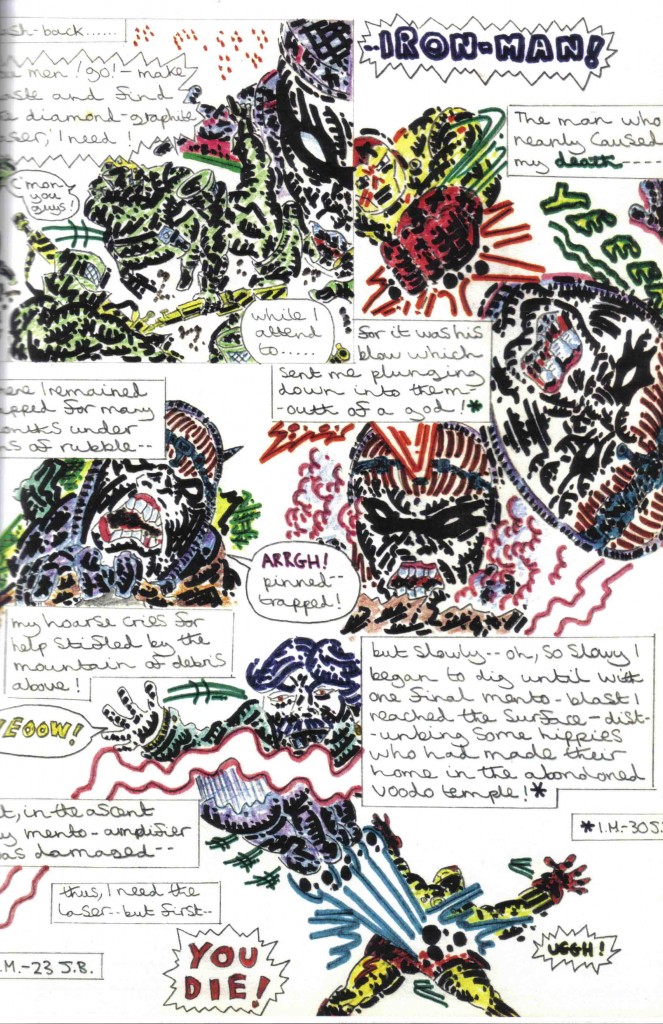 ash-back......
men! go! - make
and find
diamond-graphite
aser, I need!
C'mon
you
guys!
while I
attend
to......
--IRON-MAN!
The man who
nearly caused
my death----
for it was his
blow which
sent me plunging
down into the m-
-outh of a god!*
here I remained
apped for many
onths under
ns of rubble--
ARRGH!
pinned--
trapped!
my hoarse cries for
help stifled by the
mountain of debris
above!
but slowly--oh, so slowy I
began to dig until with
one final mento-blast I
reached the surface-dist-
-urbing some hippies
who had made their
home in the abandoned
voodo temple!*
*I.M.-30 J.
EOOW!
t, in the ascent
y mento-amplifier
as damaged--
thus, I need the
laser--but first--
YOU
DIE!
UGGH!
.M.-23 J.B.